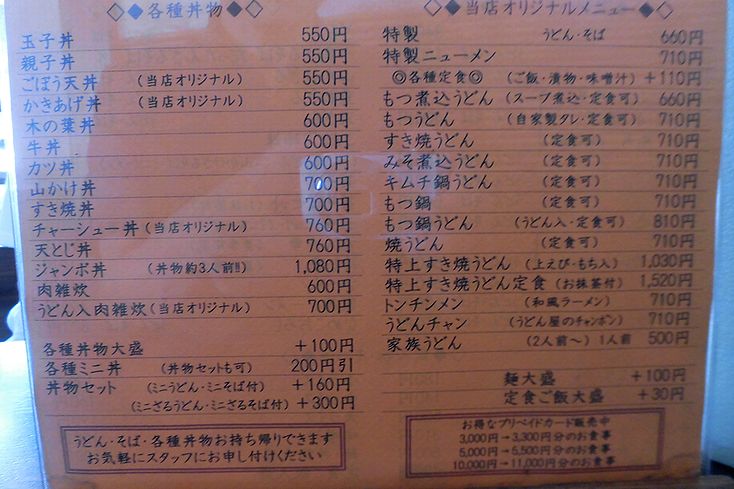 ◇◆各種丼物◆◇
玉子丼 550円
親子丼 550円
ごぼう天丼 (当店オリジナル) 550円
かきあげ丼 (当店オリジナル) 550円
木の葉丼 600円
牛丼 600円
カツ丼 600円
山かけ丼 700円
すき焼丼 700円
チャーシュー丼 (当店オリジナル) 760円
天とじ丼 760円
ジャンボ丼 (丼物約3人前!!) 1,080円
肉雑炊 600円
うどん入肉雑炊 (当店オリジナル) 700円
各種丼物大盛 +100円
各種ミニ丼 (丼物セットも可) 200円引
丼物セット (ミニうどん・ミニそば付) +160円
(ミニざるうどん・ミニざるそば付) +300円
うどん・そば・各種丼物お持ち帰りできます
お気軽にスタッフにお申し付けください
◇◆当店オリジナルメニュー◆◇
特製 うどん・そば 660円
特製ニューメン 710円
◎各種定食◎ (ご飯・漬物・味噌汁) +110円
もつ煮込うどん (スープ煮込・定食可) 660円
もつうどん (自家製タレ・定食可) 710円
すき焼うどん (定食可) 710円
みそ煮込うどん (定食可) 710円
キムチ鍋うどん (定食可) 710円
もつ鍋 (定食可) 710円
もつ鍋うどん (うどん入・定食可) 810円
焼うどん (定食可) 710円
特上すき焼うどん (上えび・もち入) 1,030円
特上すき焼うどん定食 (お抹茶付) 1,520円
トンチンメン (和風ラーメン) 710円
うどんチャン (うどん屋のチャンポン) 710円
家族うどん (2人前〜) 1人前 500円
麺大盛 +100円
定食ご飯大盛 +30円
お得なプリペイドカード販売中
3,000円→3,300円分のお食事
5,000円→5,500円分のお食事
10,000円→11,000円分のお食事